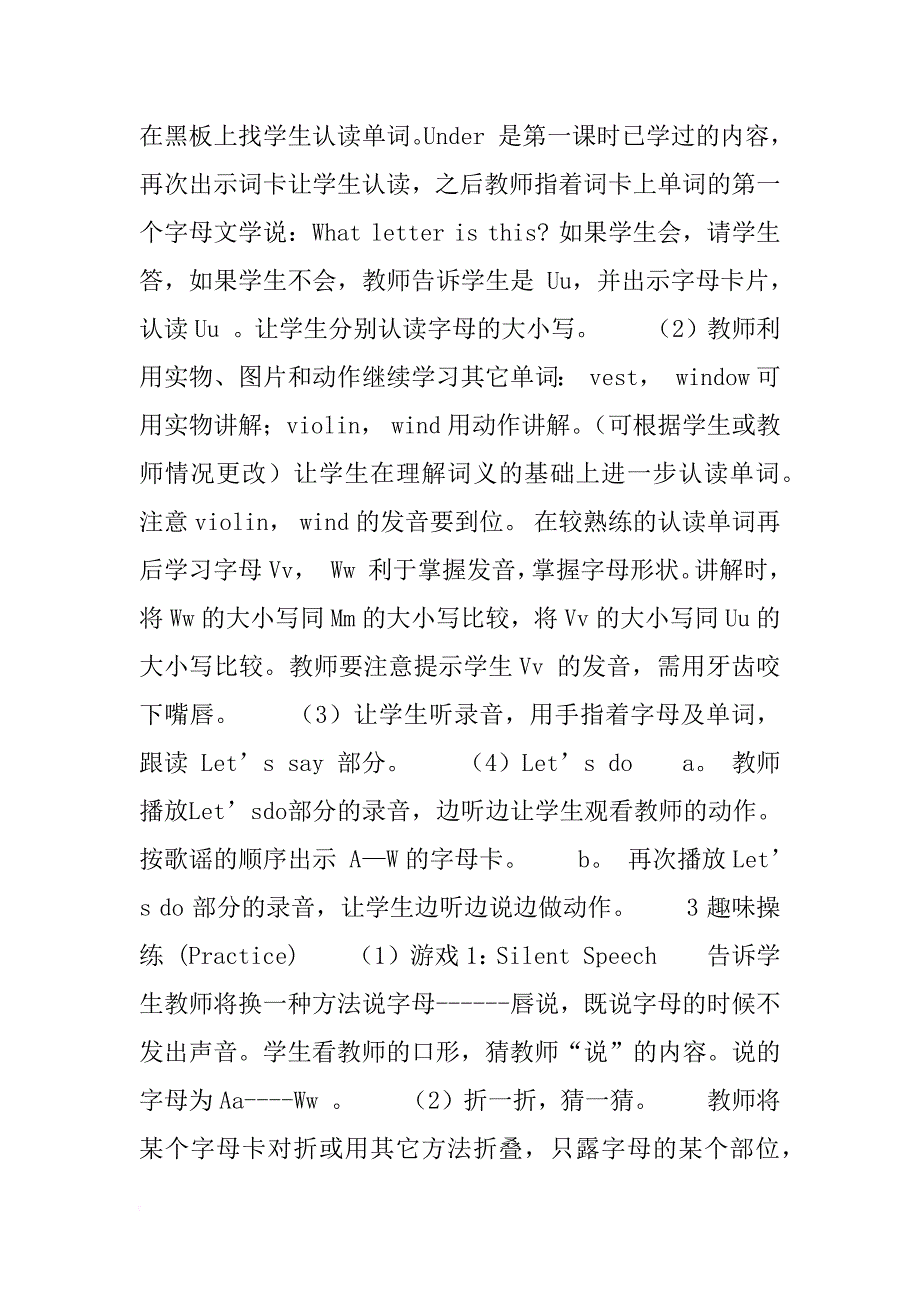 在黑板上找学生认读单词。Under 是第一课时已学过的内容，
再次出示词卡让学生认读，之后教师指着词卡上单词的第一
个字母文学说：What letter is this? 如果学生会，请学生
答，如果学生不会，教师告诉学生是 Uu，并出示字母卡片，
认读Uu 。让学生分别认读字母的大小写。 （2）教师利
用实物、图片和动作继续学习其它单词： vest， window可
用实物讲解；violin， wind用动作讲解。（可根据学生或教
师情况更改）让学生在理解词义的基础上进一步认读单词。
注意violin， wind的发音要到位。 在较熟练的认读单词再
后学习字母Vv， Ww 利于掌握发音，掌握字母形状。讲解时，
将Ww的大小写同Mm的大小写比较，将Vv的大小写同Uu的
大小写比较。教师要注意提示学生Vv 的发音，需用牙齿咬
下嘴唇。 （3）让学生听录音，用手指着字母及单词，
跟读 Let’s say 部分。 （4）Let’s do a。 教师
播放Let’sdo部分的录音，边听边让学生观看教师的动作。
按歌谣的顺序出示 A—W的字母卡。 b。 再次播放Let’
s do 部分的录音，让学生边听边说边做动作。 3 趣味操
练 (Practice) （1）游戏1：Silent Speech 告诉学
生教师将换一种方法说字母------唇说，既说字母的时候不
发出声音。学生看教师的口形，猜教师“说”的内容。说的
字母为Aa----Ww 。 （2）折一折，猜一猜。 教师将
某个字母卡对折或用其它方法折叠，只露字母的某个部位，